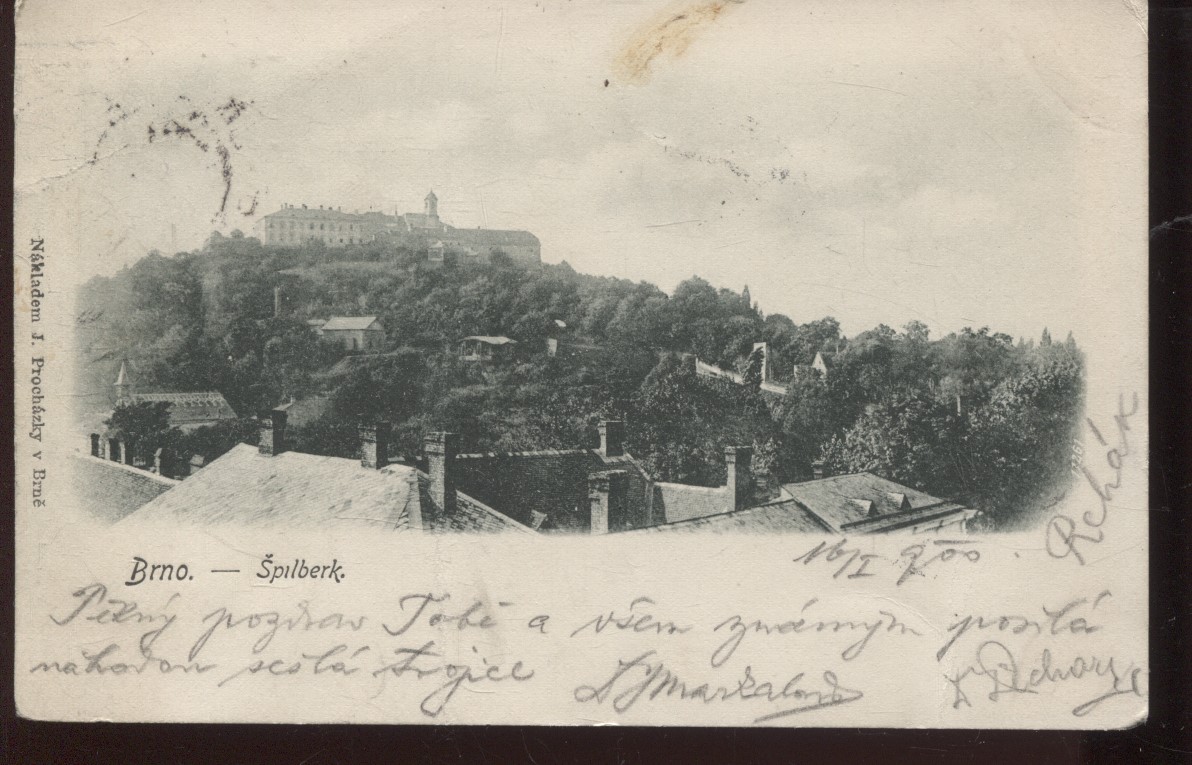 Nákladem J. Procházky v Brně
Brno. — Špilberk.
16/I 900.
Pěkný pozdrav Tobě a všem známým posílá
náhodou sešlá trojice
Rehák